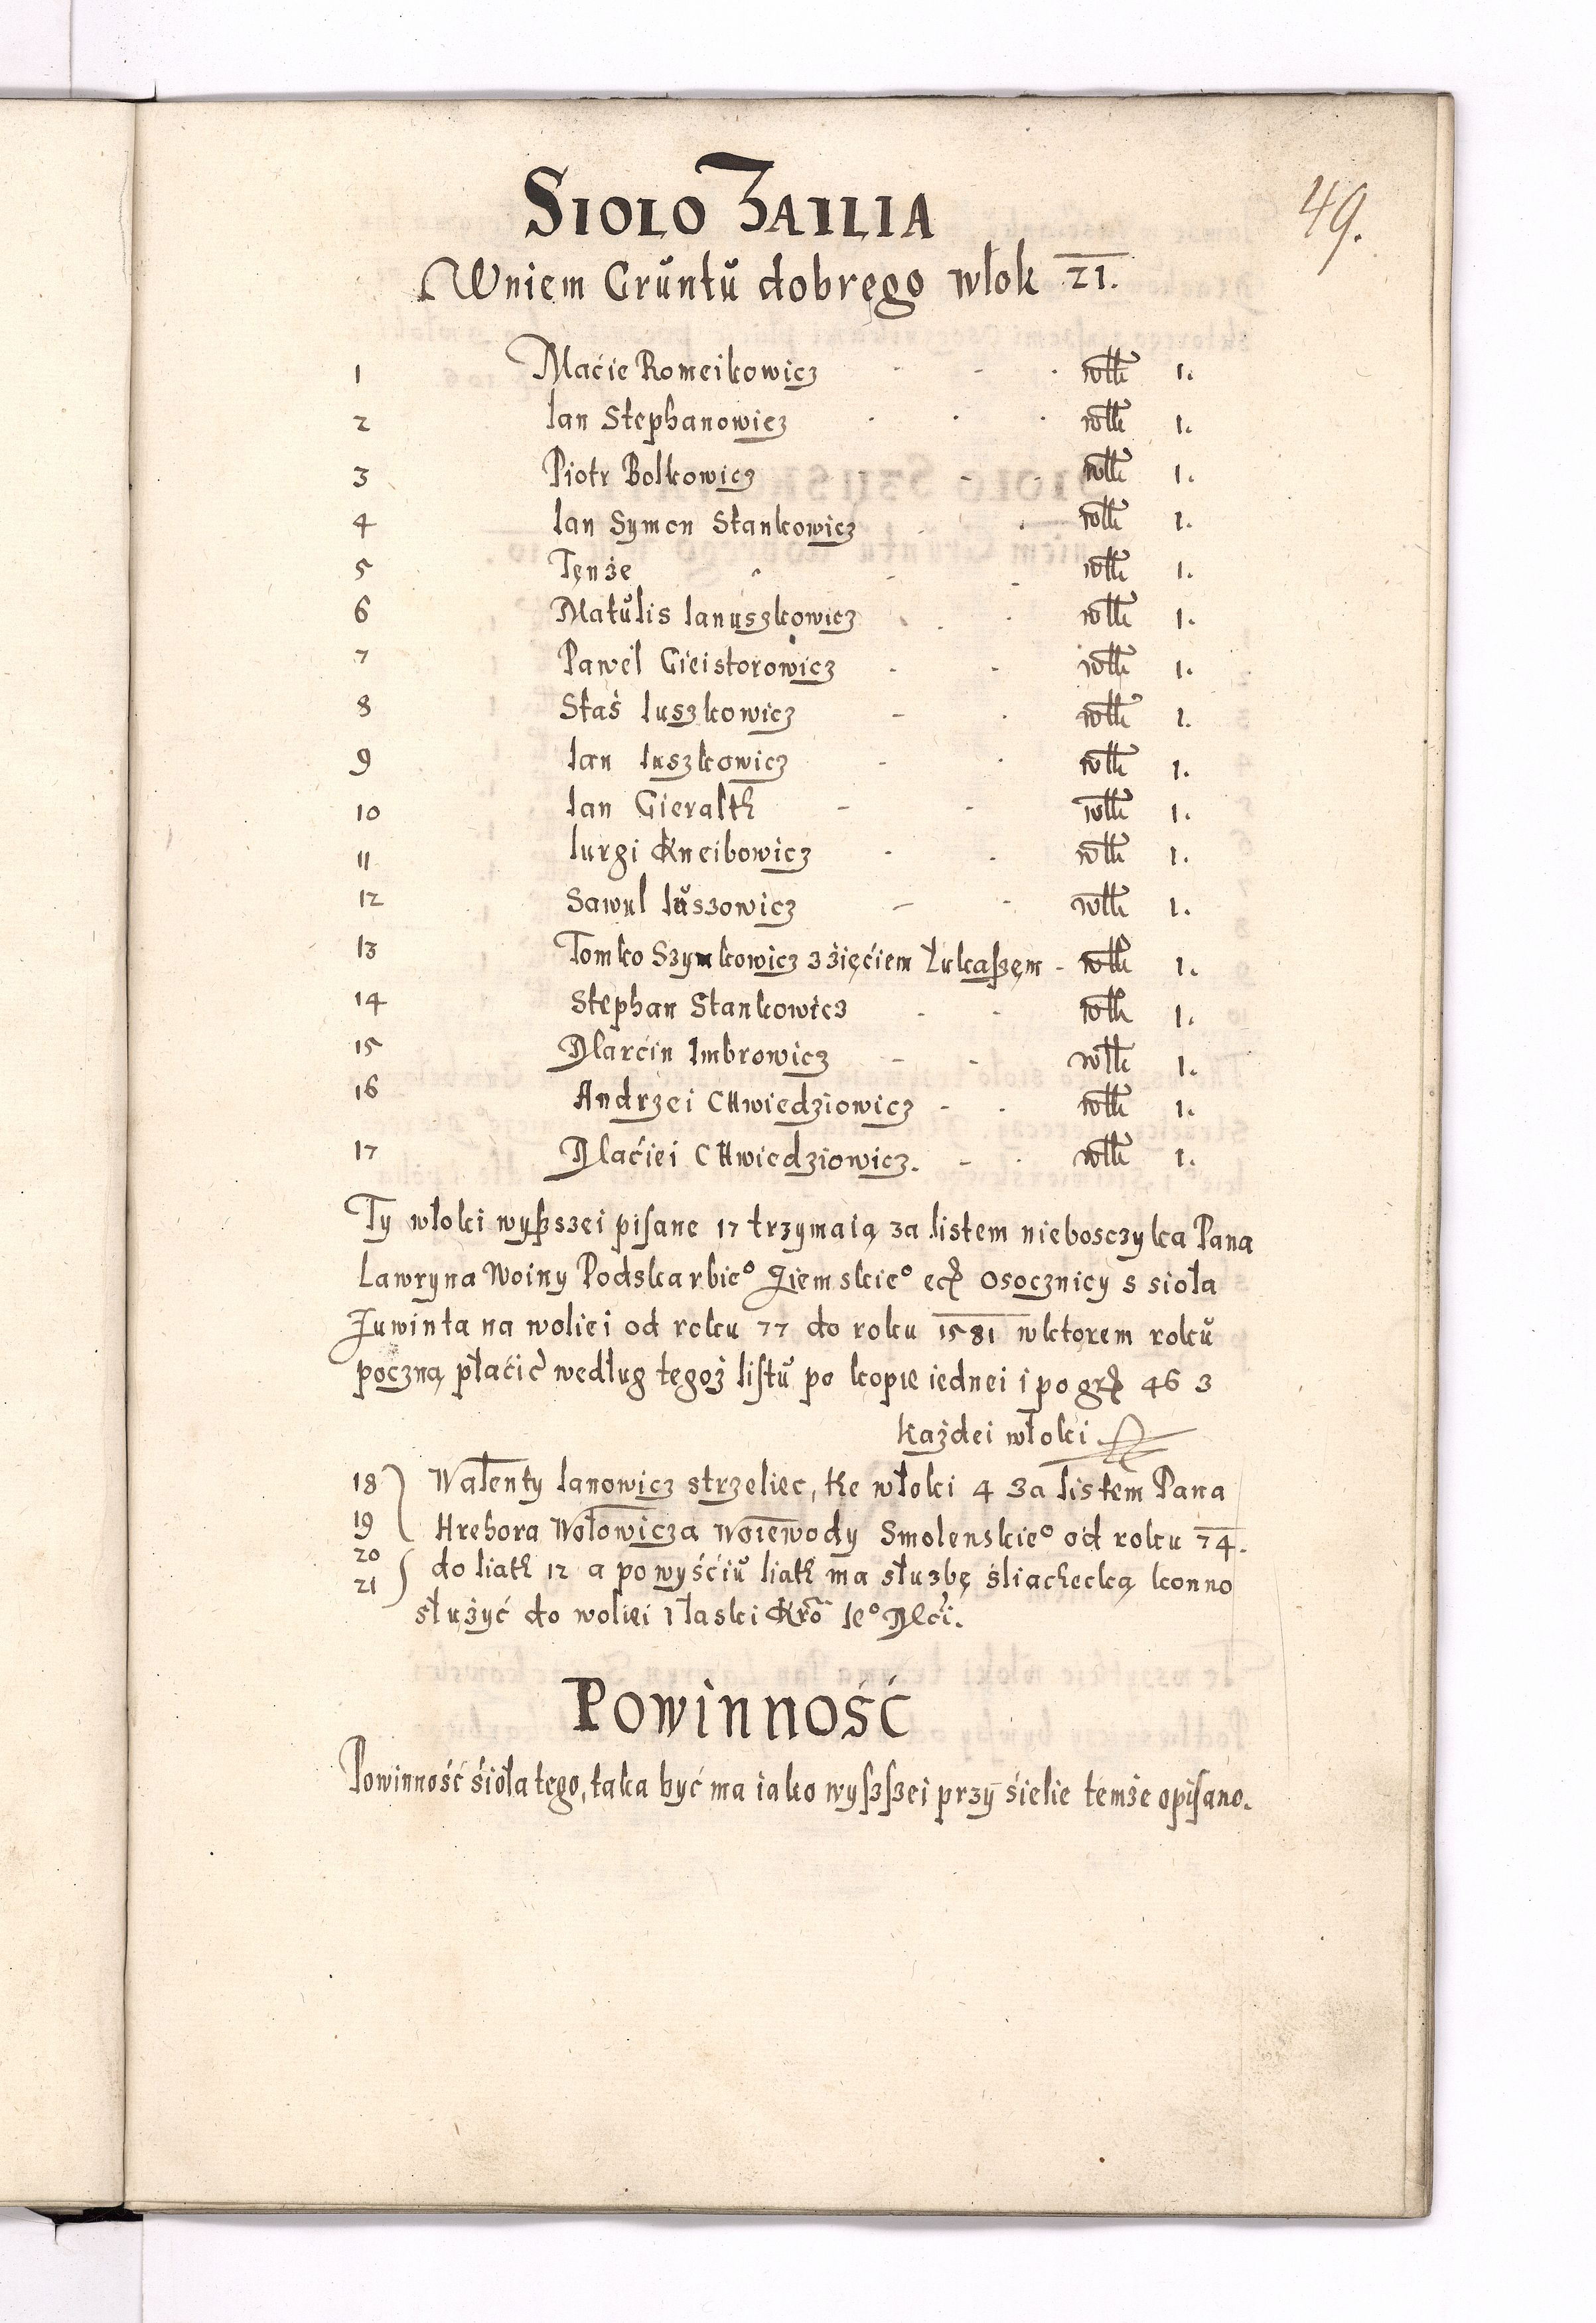 49.
SIOLO ZAILIA
Wniem Grŭntŭ dobręgo włok 21.
1 Maćie Romeikowicz - - . włk 1.
2 Ian Stephanowicz . . . włk 1.
3 Piotr Bolkowicz - - włk 1.
4 Ian Symon Stankowicz - . włk 1.
5 Tęnże - - - włk 1.
6 Matŭlis Ianuszkowicz . . . włk 1.
7 Paweł Gieistorowicz . . włk 1.
8 Staś Iuszkowicz - . włk 1.
9 Ian Iuszkowicz - . włk 1.
10 Ian Gierałth - - włk 1.
11 Iurgi Kneibowicz . . włk 1.
12 Sawul Iŭszowicz - - włk 1.
13 Tomko Szymkowicz z zięćiem Łukaſzęm - włk 1.
14 Stephan Stankowicz . . włk 1.
15 Marcin Imbrowicz - - włk 1.
16 Andrzei CHwiedziowicz - . włk 1.
17 Maćiei CHwiedziowicz. - . włk 1.
Ty włoki wyſzszei piſane 17 trzymaią za listem nieboszczyka Pana
Lawryna Woiny Podskarbie⁰ Ziemskie⁰ etc̃ Osocznicy s sioła
Zuwinta na woliei od roku 77 do roku 1581 wktorem rokŭ
poczną płaćić według tegoż liſtŭ po kopie iednei i po gr̃ 46 z
każdei włoki
18 Walenty Ianowicz strzeliec, the włoki 4 za listem Pana
19 Hrehora Wołowicza Woiewody Smolenskie⁰ od roku 74.
20 do liath 12 a po wyśćiŭ liath ma słuzbę śliachecką konno
21 służyć do woliei i łaski Kro̅ Ie⁰ Mći.
Powinność
Powinność śiola tego, taka być ma iako wyſzſzei przy śielie temże opiſano.